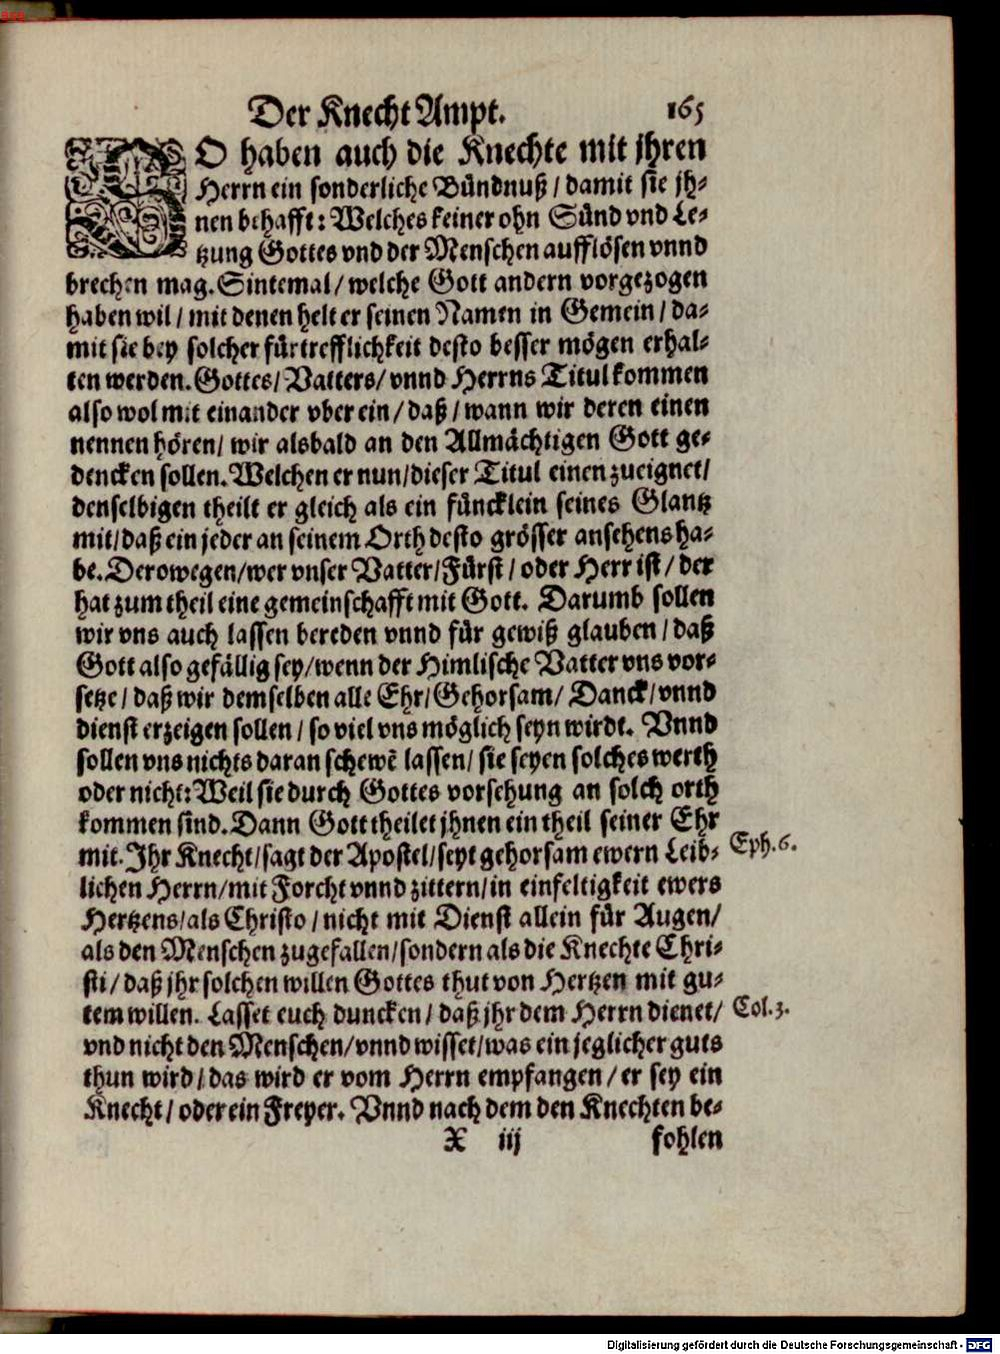 Der Knecht Ampt. 165
SO haben auch die Knechte mit jhren
Herrn ein sonderliche Bündnuß / damit sie jh-
nen behafft: Welches keiner ohn Sünd vnd Le-
tzung Gottes vnd der Menschen aufflösen vnnd
brechen mag. Sintemal / welche Gott andern vorgezogen
haben wil / mit denen helt er seinen Namen in Gemein / da-
mit sie bey solcher fürtrefflichkeit desto besser mögen erhal-
ten werden. Gottes / Vatters / vnnd Herrns Titul kommen
also wol mit einander vber ein / daß / wann wir deren einen
nennen hören / wir alsbald an den Allmächtigen Gott ge-
dencken sollen. Welchen er nun / dieser Titul einen zueignet /
denselbigen theilt er gleich als ein füncklein seines Glantz
mit / daß ein jeder an seinem Orth desto grösser ansehens ha-
be. Derowegen / wer vnser Vatter / Fürst / oder Herr ist / der
hat zum theil eine gemeinschafft mit Gott. Darumb sollen
wir vns auch lassen bereden vnnd für gewiß glauben / daß
Gott also gefällig sey / wenn der Himlische Vatter vns vor-
setze / daß wir demselben alle Ehr / Gehorsam / Danck / vnnd
dienst erzeigen sollen / so viel vns möglich seyn wirdt. Vnnd
sollen vns nichts daran schewẽ lassen / sie seyen solches werth
oder nicht: Weil sie durch Gottes vorsehung an solch orth
kommen sind. Dann Gott theilet jhnen ein theil seiner Ehr
mit. Ihr Knecht / sagt der Apostel / seyt gehorsam ewern Leib- Eph. 6.
lichen Herrn / mit Forcht vnnd zittern / in einfeltigkeit ewers
Hertzens / als Christo / nicht mit Dienst allein für Augen /
als den Menschen zugefallen / sondern als die Knechte Chri-
sti / daß jhr solchen willen Gottes thut von Hertzen mit gu-
tem willen. Lasset euch duncken / daß jhr dem Herrn dienet / Col. 3.
vnd nicht den Menschen / vnnd wisset / was ein jeglicher guts
thun wird / das wird er vom Herrn empfangen / er sey ein
Knecht / oder ein Freyer. Vnnd nach dem den Knechten be-
X iij fohlen
Digitalisierung gefördert durch die Deutsche Forschungsgemeinschaft - DFG